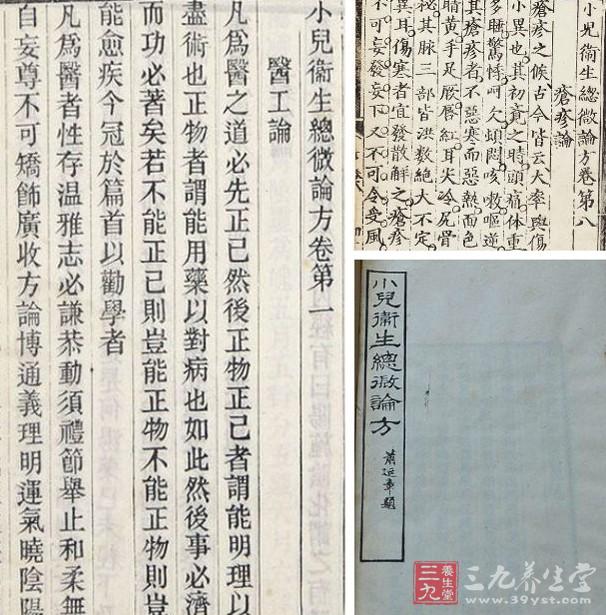 小兒衞生總微論方卷第一
醫工論
凡爲醫之道必先正己然後正物正己者謂能明理以
盡術也正物者謂能用藥以對病也如此然後事必濟
而功必著矣若不能正己則豈能正物不能正物則豈
能愈疾今冠於篇首以勸學者
凡爲醫者性存温雅志必謙恭動須禮節舉止和柔無
自妄尊不可矯飾廣收方論博通義理明運氣曉陰陽
小兒衞生總微論方卷第八
瘡疹論
瘡疹之候古今皆云大率與傷
小異也其初覺之時頭痛體重
多睡驚悸呵欠頓悶咳嗽嘔逆
其瘡疹者不惡寒而惡熱面色
黃手足厥唇紅耳尖冷尻骨
秘其脉三部皆洪數絶大不定
異耳傷寒者宜發散解之瘡疹
不可妄發妄下又不可令受風
小兒衞生總微論方
題
三九養生堂
三九养生堂
www.39yst.com